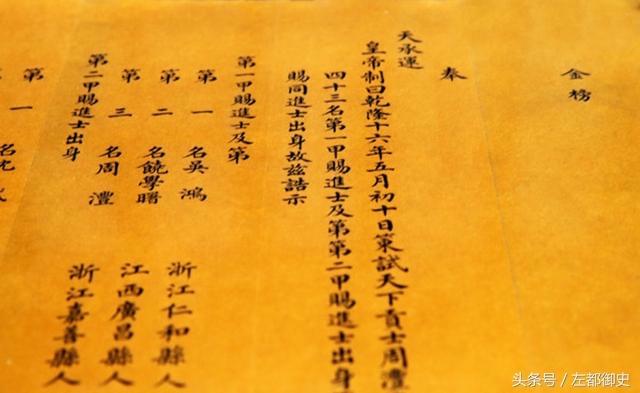 金榜
奉
天承運
皇帝制曰乾隆十六年五月初十日策試天下貢士周澧
四十三名第一甲賜進士及第第二甲賜進士出身
賜同進士出身故茲誥示
第一甲賜進士及第
第一名吳鴻 浙江仁和縣人
第二名饒學曙 江西廣昌縣人
第三名周澧 浙江嘉善縣人
第二甲賜進士出身
第一名沈
头条号／左都御史